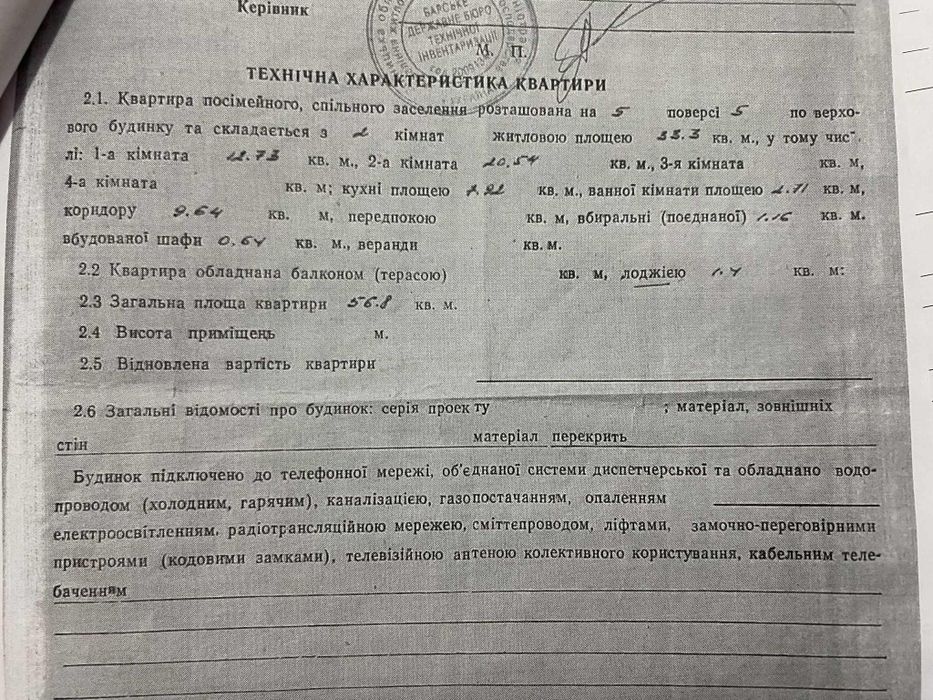 Керівник
БАРСЬКЕ
ДЕРЖАВНЕ БЮРО
ТЕХНІЧНОЇ
ІНВЕНТАРИЗАЦІЇ
М. П.
ТЕХНІЧНА ХАРАКТЕРИСТИКА КВАРТИРИ
2.1. Квартира посімейного, спільного заселення розташована на 5 поверсі 5 по верхо-
вого будинку та складається з 2 кімнат житловою площею 33.3 кв. м., у тому чис-
лі: 1-а кімната 12.73 кв. м., 2-а кімната 20.54 кв. м., 3-я кімната кв. м,
4-а кімната кв. м; кухні площею 7.92 кв. м., ванної кімнати площею 2.71 кв. м,
коридору 9.64 кв. м, передпокою кв. м, вбиральні (поєднаної) 1.16 кв. м.
вбудованої шафи 0.64 кв. м., веранди кв. м.
2.2 Квартира обладнана балконом (терасою) кв. м, лоджією 1.4 кв. м:
2.3 Загальна площа квартири 56.8 кв. м.
2.4 Висота приміщень м.
2.5 Відновлена вартість квартири
2.6 Загальні відомості про будинок: серія проекту ; матеріал, зовнішніх
стін матеріал перекрить
Будинок підключено до телефонної мережі, об'єднаної системи диспетчерської та обладнано водо-
проводом (холодним, гарячим), каналізацією, газопостачанням, опаленням
електроосвітленням, радіотрансляційною мережею, сміттєпроводом, ліфтами, замочно-переговірними
пристроями (кодовими замками), телевізійною антеною колективного користування, кабельним теле-
баченням